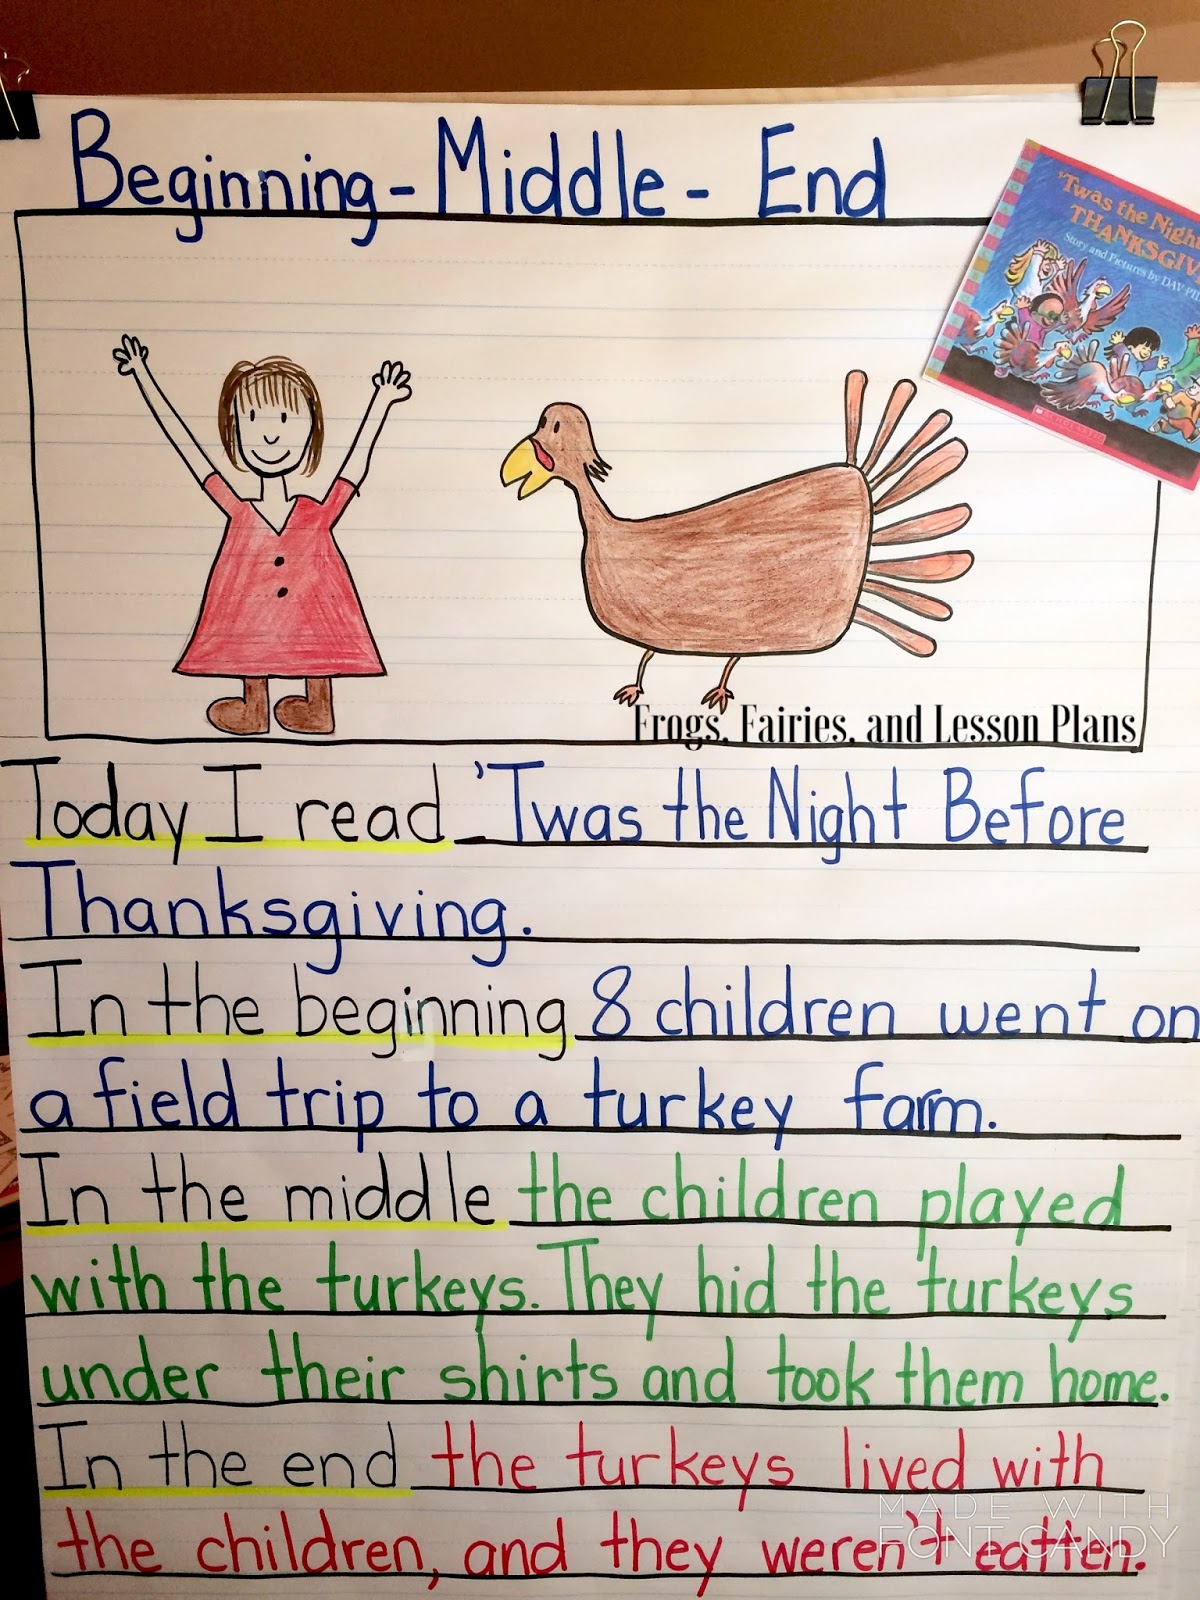 Beginning - Middle - End
'Twas the Night
THANKSGIV
Story and Pictures by DAV PI
SCHOLASTIC
Frogs, Fairies, and Lesson Plans
Today I read 'Twas the Night Before
Thanksgiving.
In the beginning 8 children went on
a field trip to a turkey farm.
In the middle the children played
with the turkeys. They hid the turkeys
under their shirts and took them home.
In the end the turkeys lived with
the children, and they weren't eatten.
MADE WITH
FONT CANDY